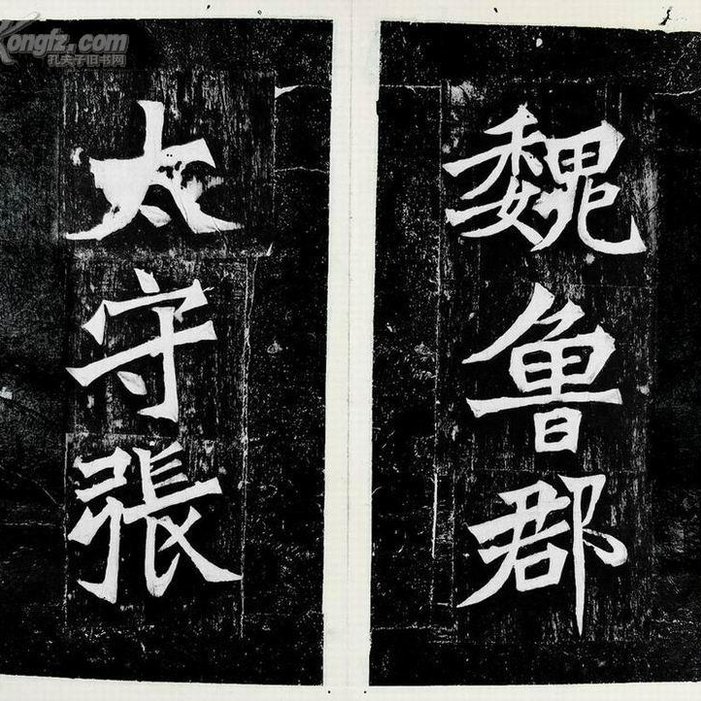 魏魯郡
太守張
Kongfz.com
孔夫子旧书网